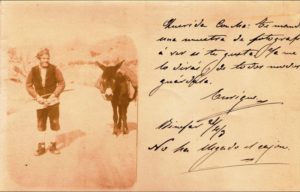 Querida Concha: Te mando
una muestra de fotografía
á ver si te gusta. Ya me
lo dirás de todos modos
guárdala.
Enrique
Binéfar
No ha llegado el cajón.